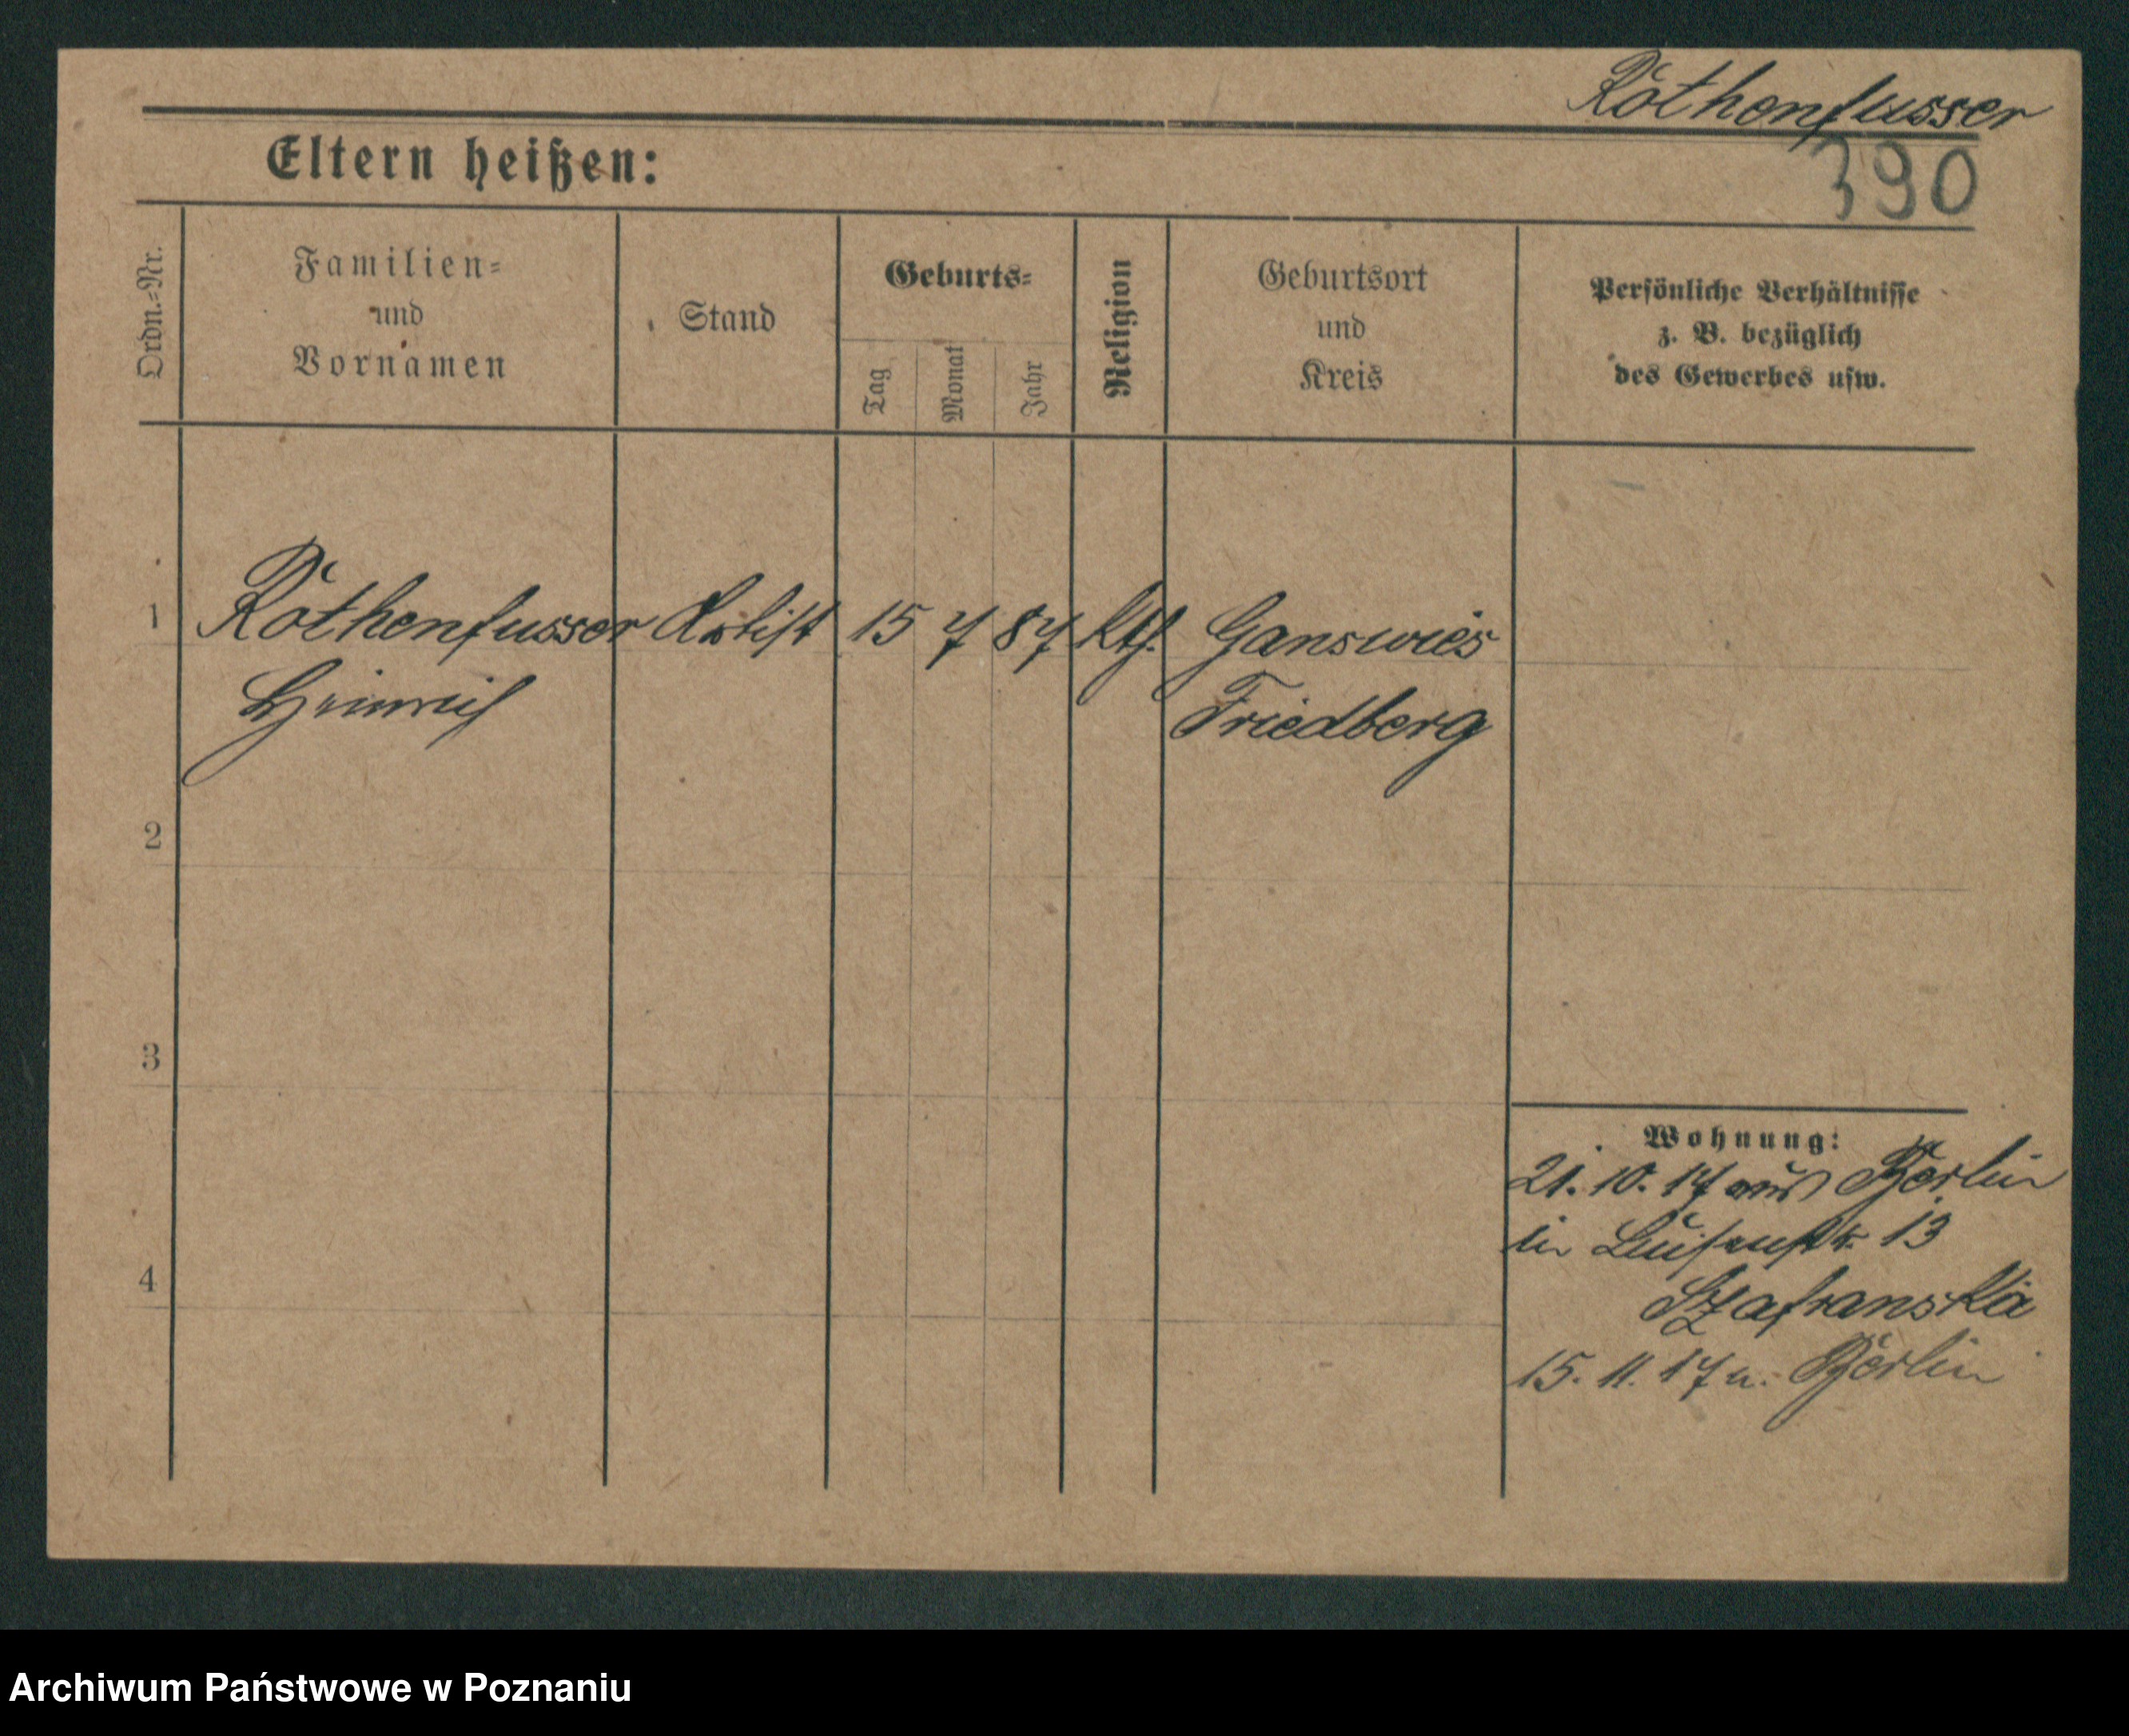 Röthenfusser
390
Eltern heißen:
Ordn.=Nr.
Familien=
und
Vornamen
Stand
Geburts=
Tag
Monat
Jahr
Religion
Geburtsort
und
Kreis
Persönliche Verhältnisse
z. B. bezüglich
des Gewerbes usw.
1 Röthenfusser Artist 15 7 87 kth. Ganswies
Heinrich Friedberg
2
3
4
Wohnung:
21. 10. 17 aus Berlin
in Luisenstr. 13
Szafranska
15. 11. 17 n. Berlin
Archiwum Państwowe w Poznaniu